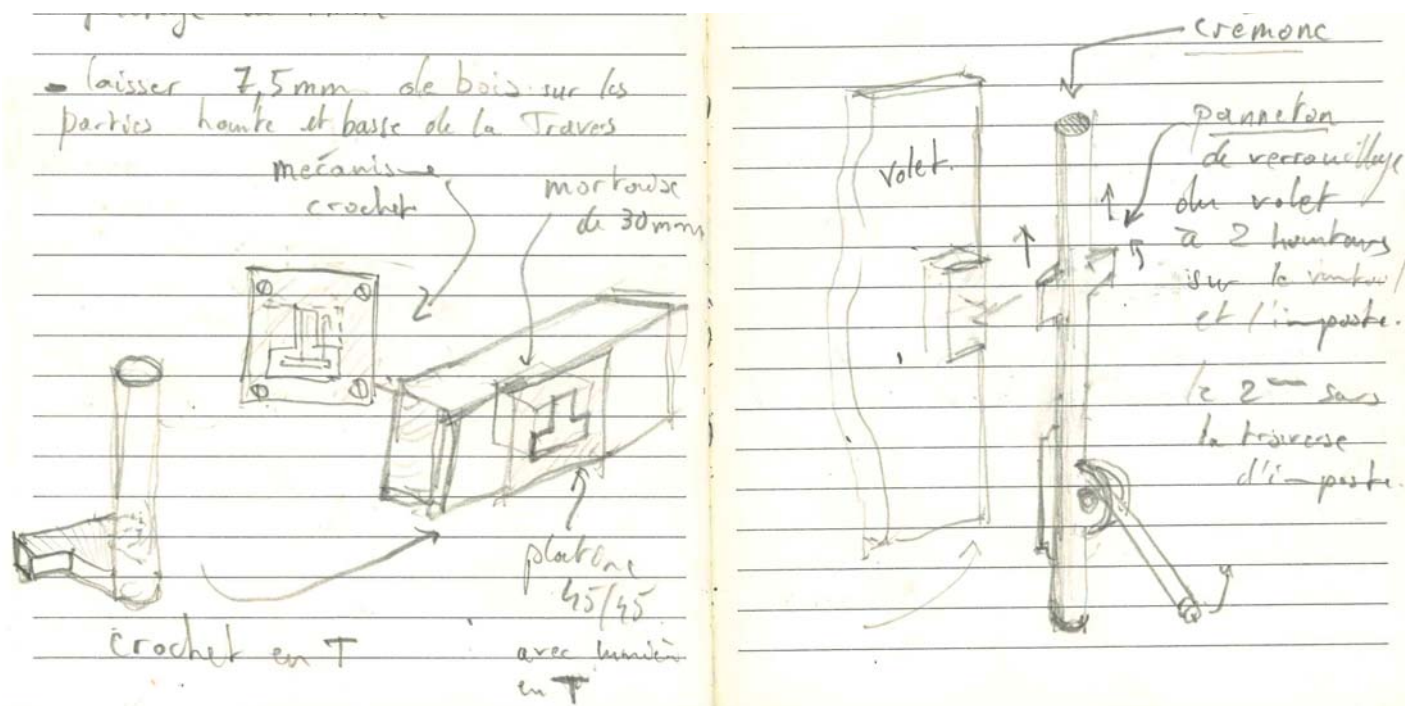 - laisser 7,5mm de bois sur les
parties haute et basse de la Travers
mécanisme
crochet
mortaise
de 30mm
platine
45/45
avec lumière
en T
crochet en T
cremone
panneton
de verrouillage
du volet
à 2 hauteurs
sur le
et l'imposte.
volet
le 2
la traverse
d'imposte.